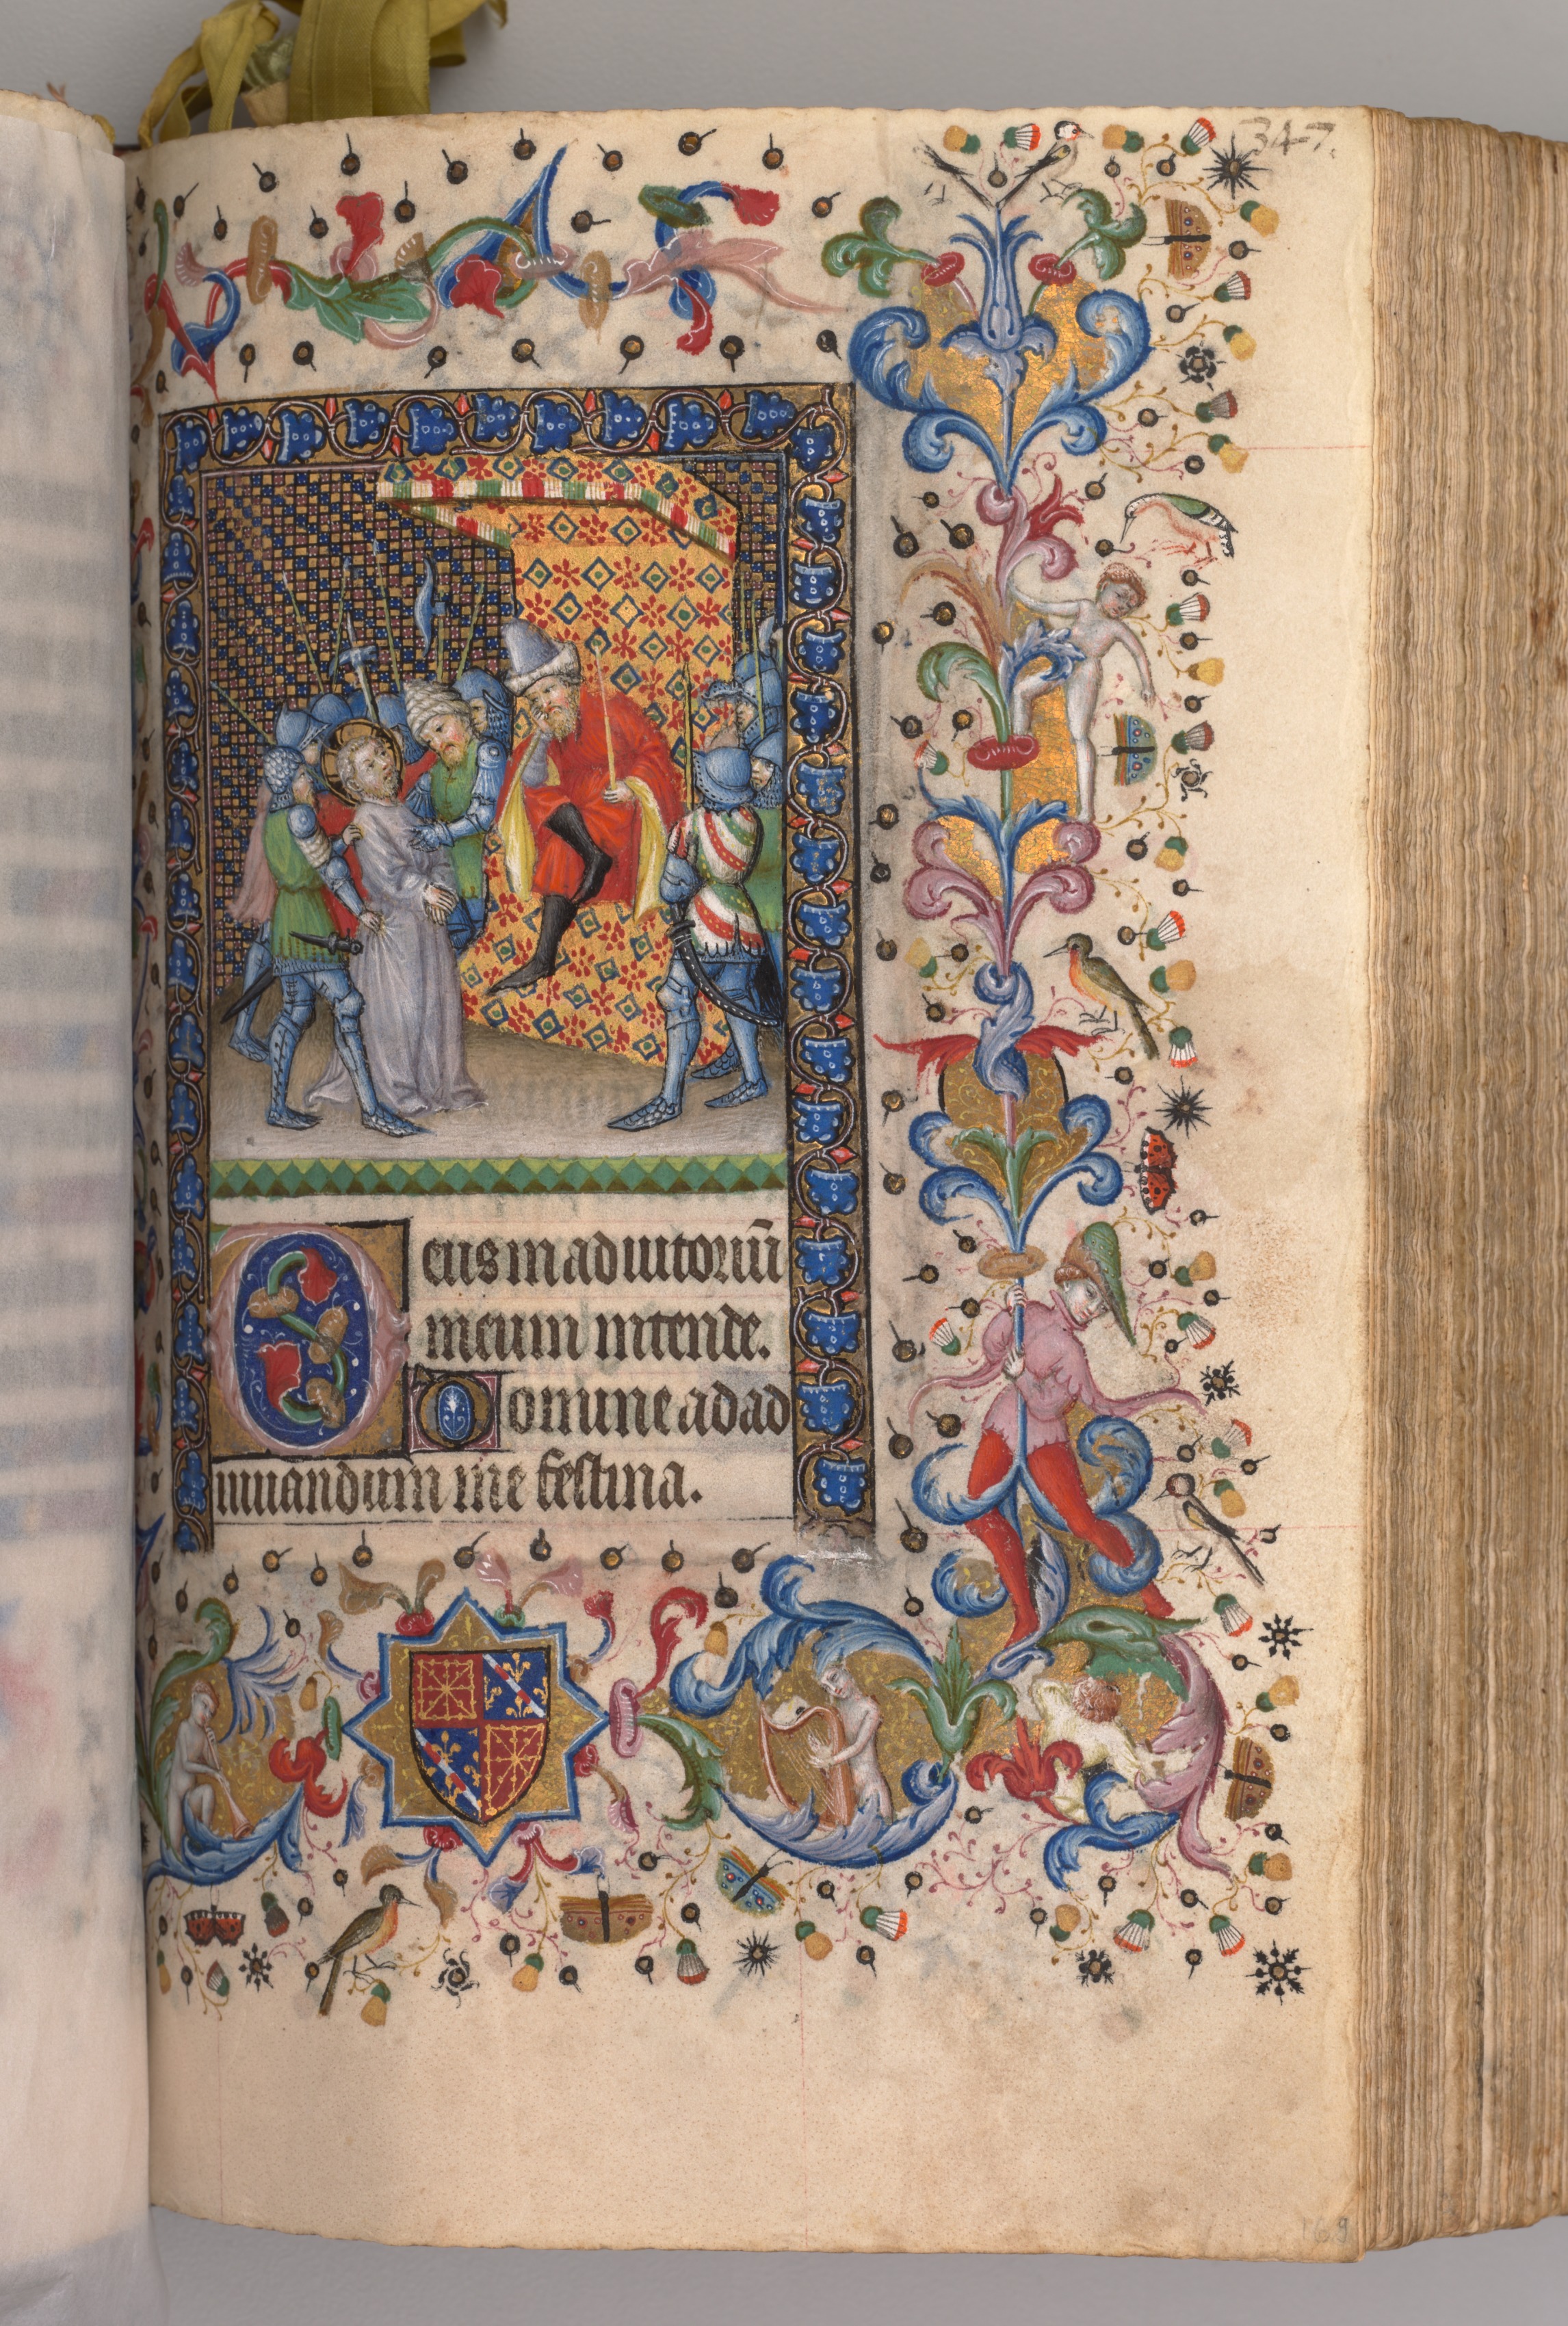 347.
Deus in adiutoriū
meum intende.
Domine ad ad
iuuandum me festina.
169